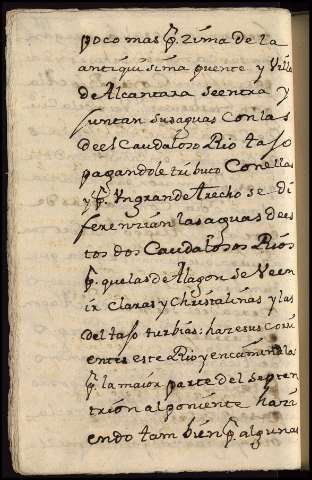 poco mas p̱. zima de la
antiquisima puente y Villa
de Alcantara se entra y
juntan sus aguas con las
de el Caudaloso Rio tajo
pagandole tributo Con ellas
y p̱. Un grande trecho se di
ferenzian las aguas de es
tos dos Caudalosos Rios
p̱. que las de Alagon se Veen
ir claras y Christalinas y las
del tajo turbias: haze sus Corri
entes este Rio y encamina la
p̱. la maior parte del Septen
trion al poniente hazi
endo tambien p̱. algunas